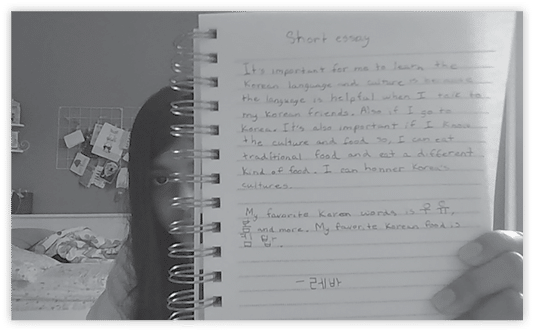 Short essay
It's important for me to learn the
Korean language and culture is because
the language is helpful when I talk to
my Korean friends. Also if I go to
Korea. It's also important if I know
the culture and food so, I can eat
traditional food and eat a different
kind of food. I can honner Korea's
cultures.
My favorite Korean words is 우유,
봄 and more. My favorite Korean food is
김밥.